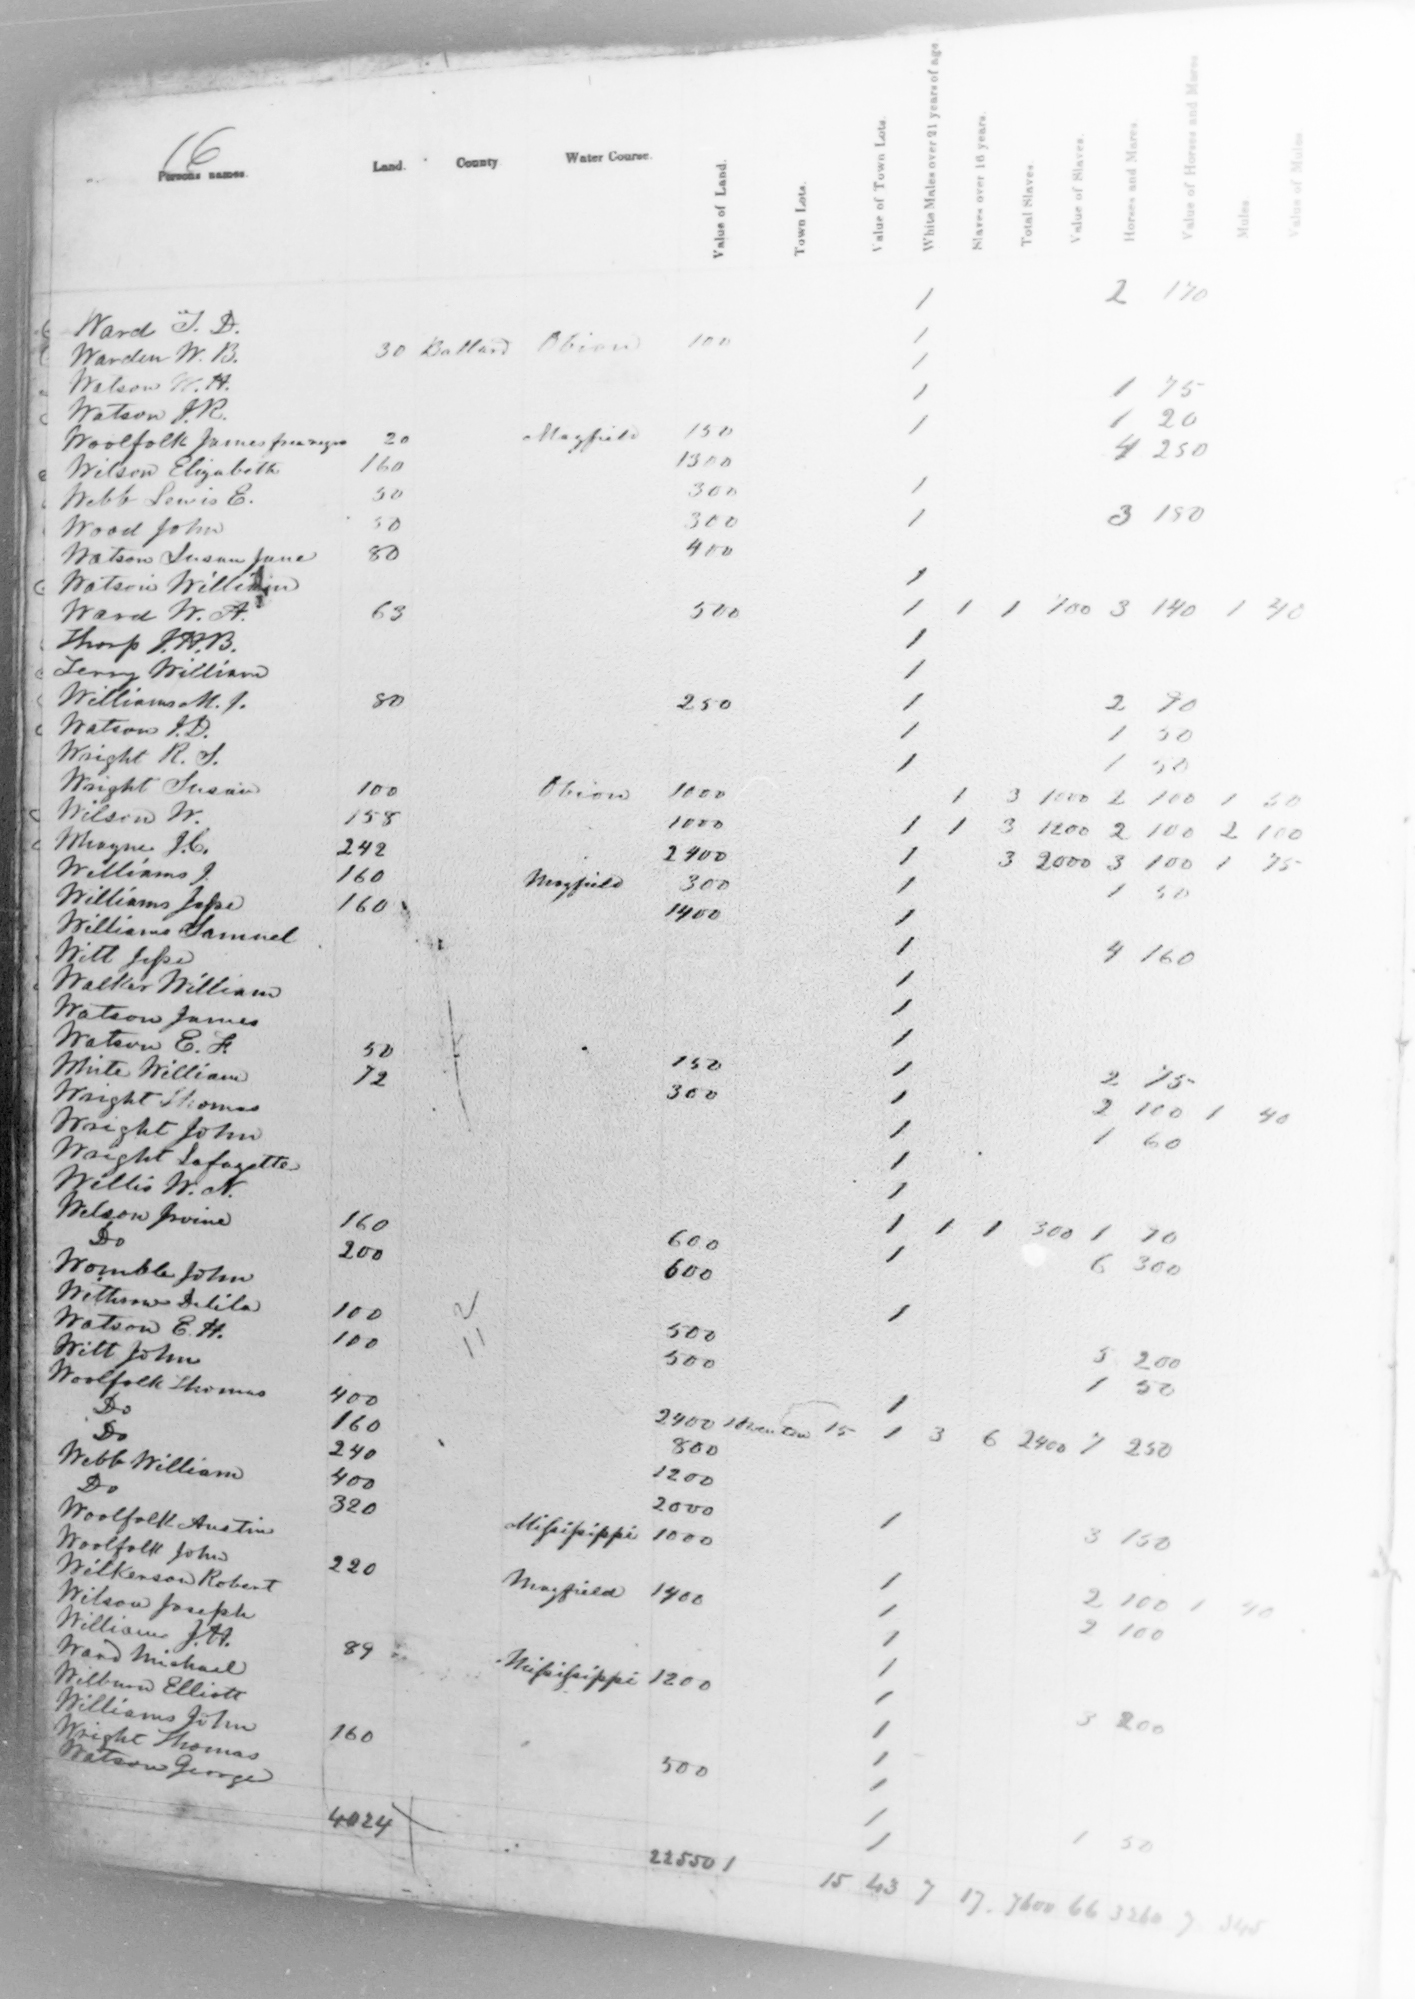 16
Persons names. Land. County Water Course. Value of Land. Town Lots. Value of Town Lots. White Males over 21 years of age Slaves over 16 years. Total Slaves Value of Slaves. Horses and Mares. Value of Horses and Mares Mules Value of Mules
Ward T. D. 1 2 170
Warden W. B. 30 Ballard Obion 100 1
Watson W. H. 1
Watson J. R. 1 1 75
Woolfolk James free negro 20 Mayfield 150 1 1 20
Wilson Elizabeth 160 1300 4 250
Webb Lewis E. 50 300 1
Wood John 50 300 1 3 150
Watson Susan Jane 80 400
Watson William 1
Ward W. A. 63 500 1 1 1 700 3 140 1 40
Tharp J. A. B. 1
Terry William 1
Williams M. J. 80 250 1 2 90
Watson J. D. 1 1 50
Wright R. S. 1 1 50
Wright Susan 100 Obion 1000 1 3 1000 2 100 1 50
Wilson W. 158 1000 1 1 3 1200 2 100 2 100
Whayne J. C. 242 2400 1 3 2000 3 100 1 75
Williams J. 160 Mayfield 300 1 1 50
Williams Jesse 160 1400 1
Williams Samuel 1 4 160
Witt Jesse 1
Walker William 1
Watson James 1
Watson E. F. 50 150 1 2 75
White William 72 300 1 2 100 1 40
Wright Thomas 1 1 60
Wright John 1
Wright Lafayette 1
Willis W. N. 1 1 1 300 1 70
Wilson Irvine 160 600 1 6 300
Do 200 600
Womble John 1
Withrow Delila 100 500 5 200
Watson E. H. 100 500 1 50
Witt John 1
Woolfolk Thomas 400 2400 15 1 3 6 2400 7 250
Do 160 800
Do 240 1200
Webb William 400 2000 1 3 150
Do 320 Missisippi 1000
Woolfolk Austin 1 2 100 1 40
Woolfolk John 220 Mayfield 1400 1 2 100
Wilkerson Robert 1
Wilson Joseph 1
Williams J. H. 89 Missisippi 1200 1 3 200
Ward Michael 1
Wilburn Elliott 1
Williams John 160 500 1
Wright Thomas 1
Watson George 1 1 50
4024 22550 1 15 43 7 17 7600 66 3260 7 345